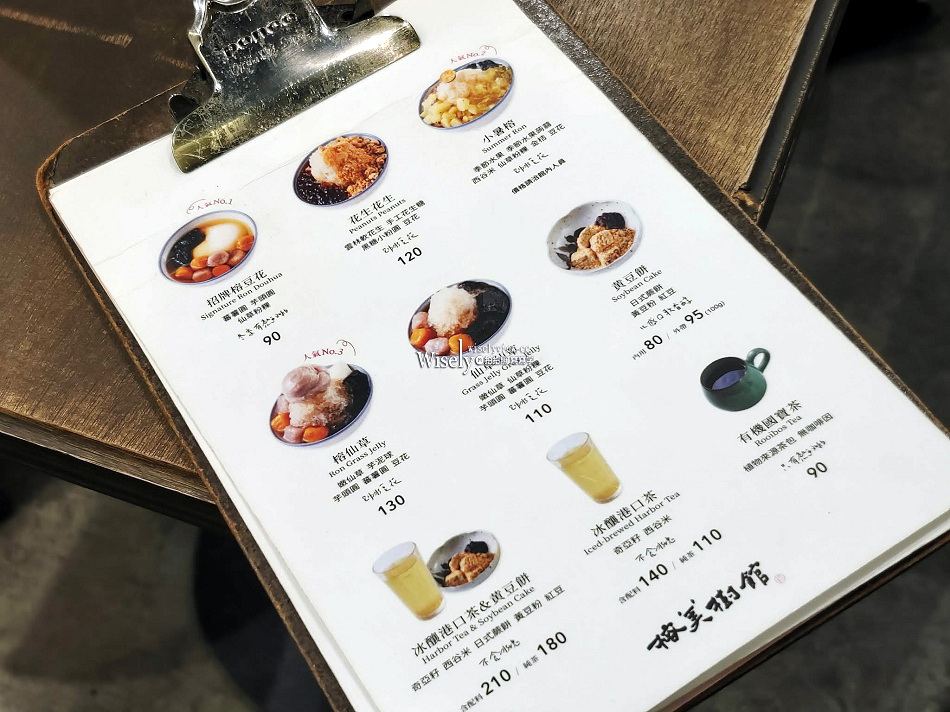 人氣No.1
招牌榕豆花
Signature Ron Douhua
蕃薯圓 芋頭圓
仙草粉粿
90
花生花生
Peanuts Peanuts
雲林軟花生 手工花生糖
黑糖小粉圓 豆花
120
人氣No.2
小暑榕
Summer Ron
季節水果 季節水果蒟蒻
西谷米 仙草粉粿 金桔 豆花
價格請洽館內人員
人氣No.3
榕仙草
Ron Grass Jelly
嫩仙草 芋泥球
芋頭圓 蕃薯圓 豆花
130
仙草
Grass Jelly
嫩仙草 仙草粉粿
芋頭圓 蕃薯圓 豆花
110
Wisely
黃豆餅
Soybean Cake
日式蕨餅
黃豆粉 紅豆
內用 80 / 外帶 95 (100g)
冰釀港口茶&黃豆餅
Harbor Tea & Soybean Cake
奇亞籽 西谷米 日式蕨餅 黃豆粉 紅豆
含配料 210 / 純茶 180
冰釀港口茶
Iced-brewed Harbor Tea
奇亞籽 西谷米
含配料 140 / 純茶 110
有機國寶茶
Rooibos Tea
植物來源茶包 無咖啡因
90
榕美樹館